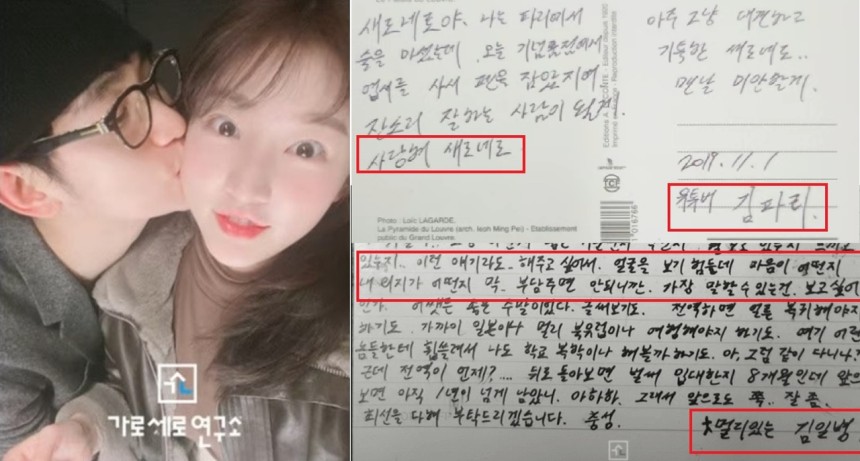 가로세로 연구소
새로네로야. 나는 파리에서
술을 마셨는데 오늘 기념품점에서
엽서를 사서 펜을 잡았지여.
잔소리 잘하는 사람이
사랑해 새로네로
아주 그냥 대견하고
기특한 새로네로..
맨날 미안할게.
2019.11.1
김파리.
Photo : Loïc LAGARDE.
La Pyramide du Louvre (arch. Ieoh Ming Pei) - Etablissement
public du Grand Louvre.
있는지.. 이런 얘기라도.. 해주고 싶어서. 얼굴을 보기 힘든데 마음이 어떤지
내 의지가 어떤지 막.. 부담주면 안되니깐. 가장 말할수 있는건. 보고싶어
전역하면 얼른 복귀해야지
하기도. 가까이 일본이나 멀리 북유럽이나 여행해야지 하기도. 얘기 어린
놈들한테 휩쓸려서 나도 학교 복학이나 해볼까 하기도. 아, 그럼 같이 다니나?
근데 전역이 언제?.... 뒤로 돌아보면 벌써 입대한지 8개월인데 앞으
보면 아직 1년이 넘게 남았니. 아하하. 그래서 앞으로도 쭉.. 잘 좀.
최선을 다해 부탁드리겠습니다. 충성.
멀리있는 김일병